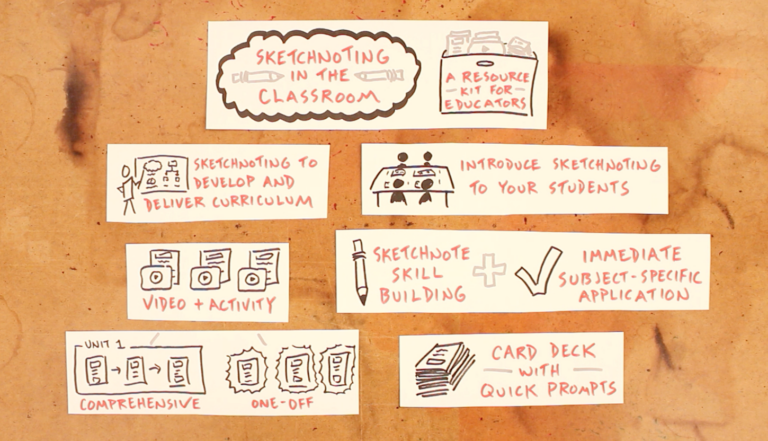 SKETCHNOTING
IN THE
CLASSROOM
A RESOURCE
KIT FOR
EDUCATORS
SKETCHNOTING TO
DEVELOP AND
DELIVER CURRICULUM
INTRODUCE SKETCHNOTING
TO YOUR STUDENTS
VIDEO + ACTIVITY
SKETCHNOTE
SKILL
BUILDING
+
IMMEDIATE
SUBJECT-SPECIFIC
APPLICATION
UNIT 1
COMPREHENSIVE
ONE-OFF
CARD DECK
WITH
QUICK PROMPTS